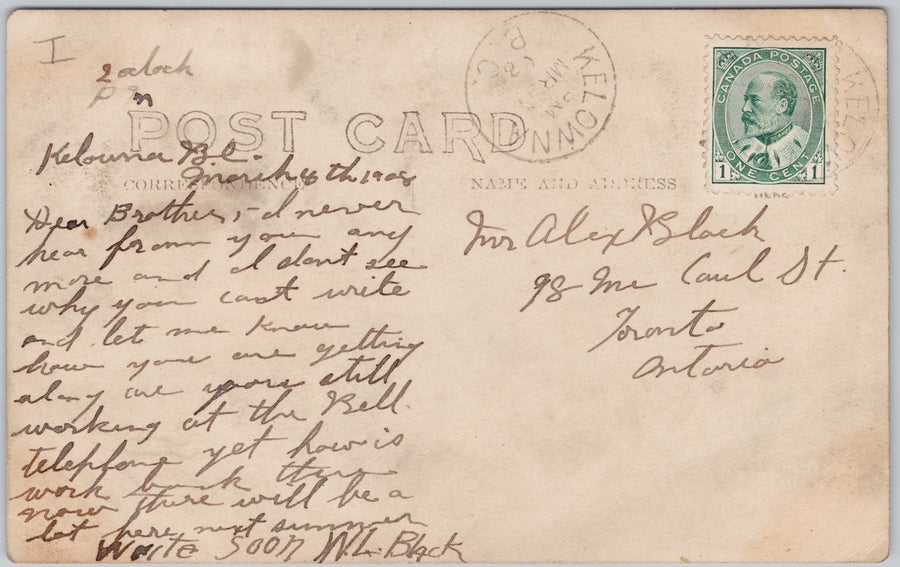 I
2 oclock
P m
POST CARD
KELOWNA
B.C.
MR
PM
08
CANADA POSTAGE
ONE CENT
1 1
KELO
CORRESPONDENCE
NAME AND ADDRESS
HERE
Kelowna B.C.
March 4th 1908
Dear Brother,- I never
hear from you any
more and I dont see
why you cant write
and let me know
how you are getting
along are you still
working at the Bell
telephone yet how is
work back there
now there will be a
lot here next summer
Write Soon W.L. Black
Mr Alex Black
98 Mc Caul St.
Toronto
Ontario